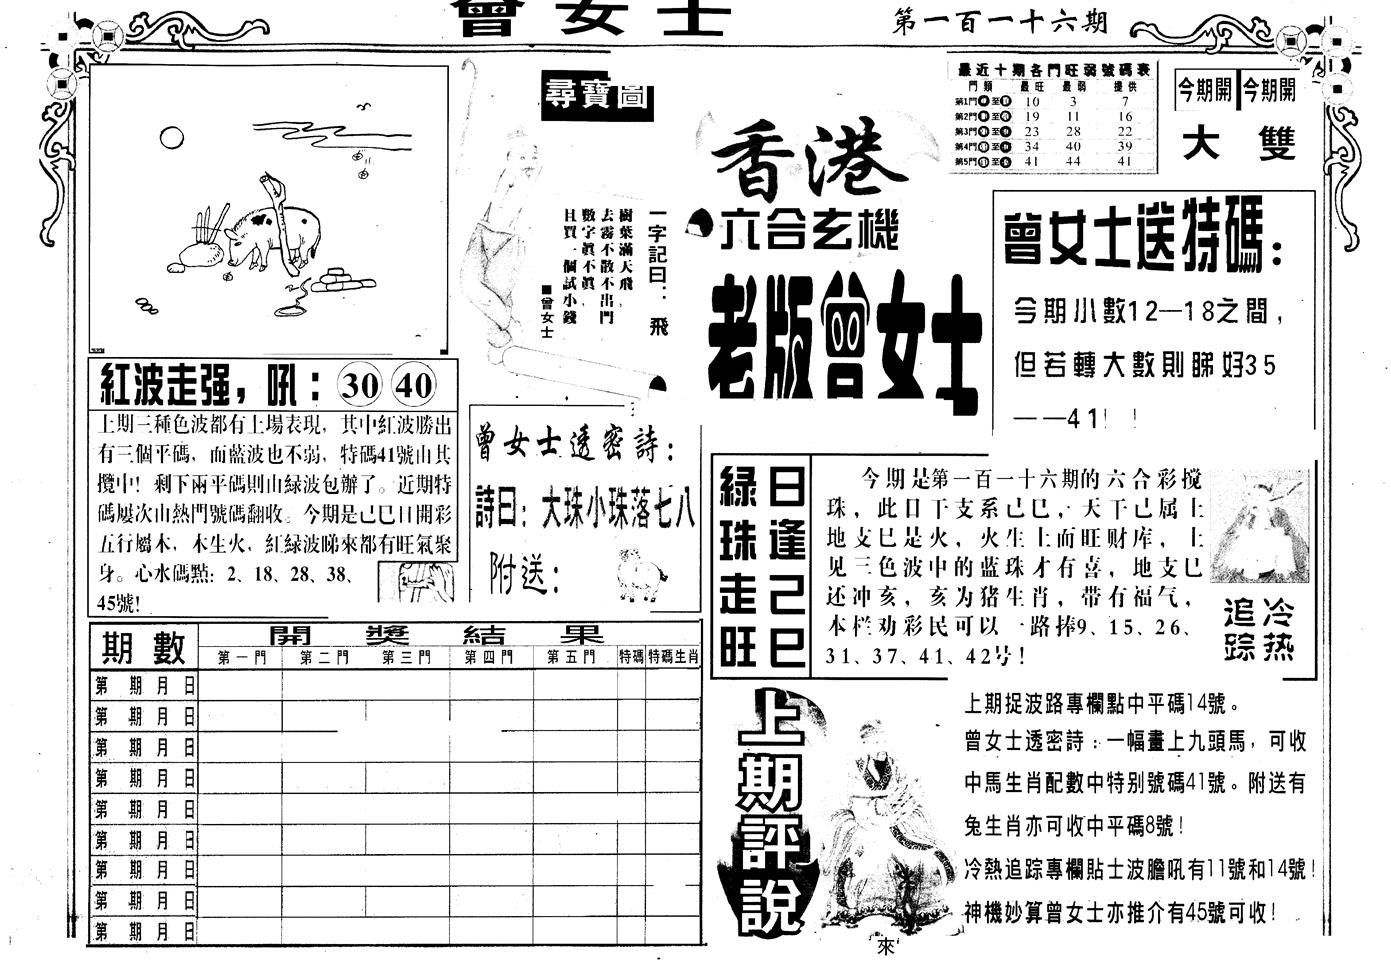 曾女士
第一百一十六期
尋寶圖
一字記曰：飛
樹葉滿天飛，
去霧不散不出門
數字真不真，
且買一個試小錢
■曾女士
香港
六合玄機
老版曾女士
最近十期各門旺弱號碼表
門類 最旺 最弱 提供
第1門 至 10 3 7
第2門 至 19 11 16
第3門 至 23 28 22
第4門 至 34 40 39
第5門 至 41 44 41
今期開 今期開
大 雙
曾女士送特碼：
今期小數12—18之間，
但若轉大數則睇好35
——41！！
紅波走强，吼：30 40
上期三種色波都有上場表現，其中紅波勝出
有三個平碼，而藍波也不弱，特碼41號由其
攬中！剩下兩平碼則由綠波包辦了。近期特
碼屢次由熱門號碼翻收。今期是己巳日開彩
五行屬木，木生火，紅緑波睇來都有旺氣聚
身。心水碼點：2、18、28、38、
45號！
曾女士透密詩：
詩曰：大珠小珠落七八
附送：
日逢己巳
綠珠走旺
今期是第一百一十六期的六合彩搅
珠，此日干支系己巳，天干己属土
地支巳是火，火生土而旺财库，土
见三色波中的蓝珠才有喜，地支巳
还冲亥，亥为猪生肖，带有福气，
本栏劝彩民可以一路捧9、15、26、
31、37、41、42号！
冷热
追踪
期數 開獎結果
第一門 第二門 第三門 第四門 第五門 特碼 特碼生肖
第 期 月 日
第 期 月 日
第 期 月 日
第 期 月 日
第 期 月 日
第 期 月 日
第 期 月 日
第 期 月 日
第 期 月 日
上期評說
上期捉波路專欄點中平碼14號。
曾女士透密詩：一幅畫上九頭馬，可收
中馬生肖配數中特别號碼41號。附送有
兔生肖亦可收中平碼8號！
冷熱追踪專欄貼士波膽吼有11號和14號！
神機妙算曾女士亦推介有45號可收！
來